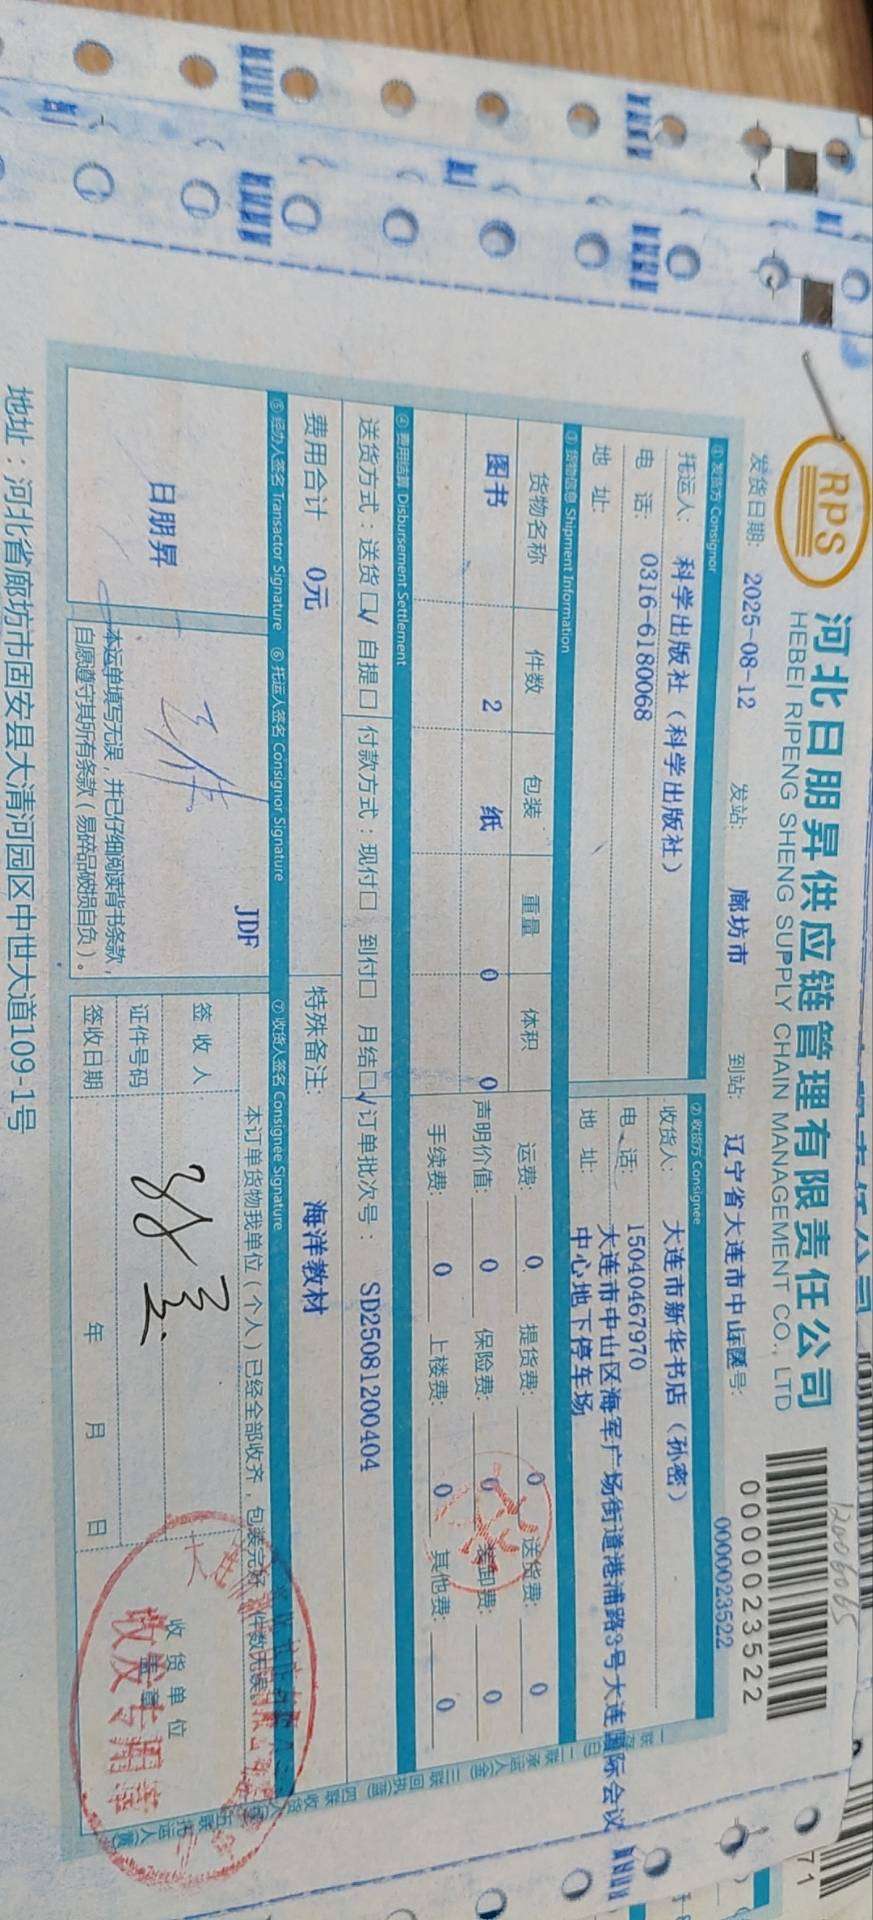 RPS
河北日朋昇供应链管理有限责任公司
HEBEI RIPENG SHENG SUPPLY CHAIN MANAGEMENT CO., LTD
12006065
0000023522
0000023522
发货日期: 2025-08-12 发站: 廊坊市 到站: 辽宁省大连市中山区 号:
① 发货方 Consignor
托运人: 科学出版社（科学出版社）
电 话: 0316-6180068
地 址:
② 收货方 Consignee
收货人: 大连市新华书店（孙密）
电 话: 15040467970
地 址: 大连市中山区海军广场街道港浦路3号大连国际会议
中心地下停车场
③ 货物信息 Shipment Information
货物名称 件数 包装 重量 体积
图书 2 纸 0 0
运费: 0 提货费: 0 送货费: 0
声明价值: 0 保险费: 0 装卸费: 0
手续费: 0 上楼费: 0 其他费: 0
④ 费用结算 Disbursement Settlement
送货方式：送货□√ 自提□ 付款方式：现付□ 到付□ 月结□√ 订单批次号： SD25081200404
费用合计 0元 特殊备注: 海洋教材
⑤ 经办人签名 Transactor Signature ⑥ 托运人签名 Consignor Signature ⑦ 收货人签名 Consignee Signature
日朋昇
JDF
本运单填写无误，并已仔细阅读背书条款，
自愿遵守其所有条款（易碎品破损自负）。
本订单货物我单位（个人）已经全部收齐，包装完好，件数无误。
签 收 人
证件号码
签收日期 年 月 日
收货单位
盖章
收发专用章
地址：河北省廊坊市固安县大清河园区中世大道109-1号
71